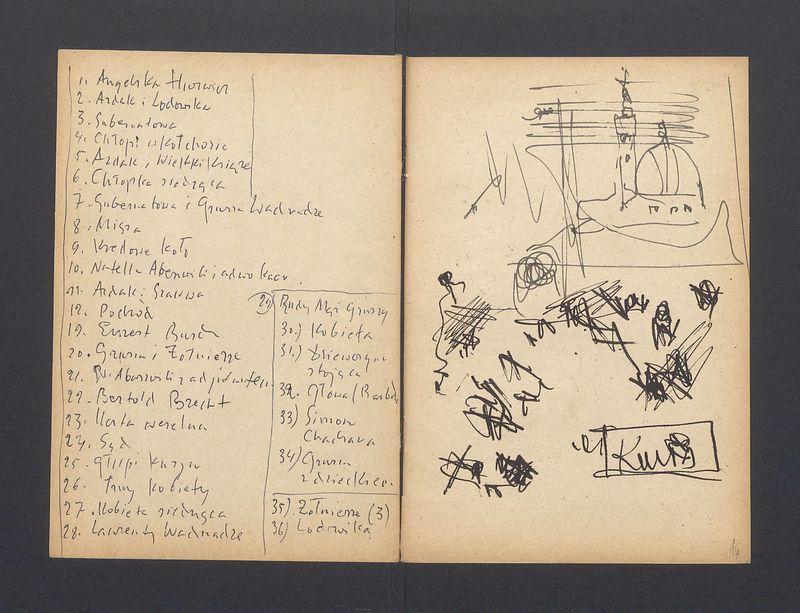 1. Angelika Hurwicz
2. Azdak i Ludowika
3. Gubernatowa
4. Chłopi w kołchozie
5. Azdak i Wielki Książe
6. Chłopka siedząca
7. Gubernatowa i Grusza Wachnadze
8. Misza
9. Kredowe koło
10. Natella Abaszwili i adwokaci
11. Azdak i Szauwa
12. Pochód
19. Ernest Busch
20. Grusza i Żołnierze
21. Abaszwili z adjutantem
22. Bertold Brecht
23. weselna
24. Sąd
25. Głupi Kuzyn
26. Trzy kobiety
27. Kobieta siedząca
28. Lawrenty Wachnadze
29) Mąż Gruszy
30.) Kobieta
31.) Dziewczyna
stojąca
32. Głowa
33) Simon
Chachava
34) Grusza
z dzieckiem
35). Żołnierze (3)
36) Ludowika
16